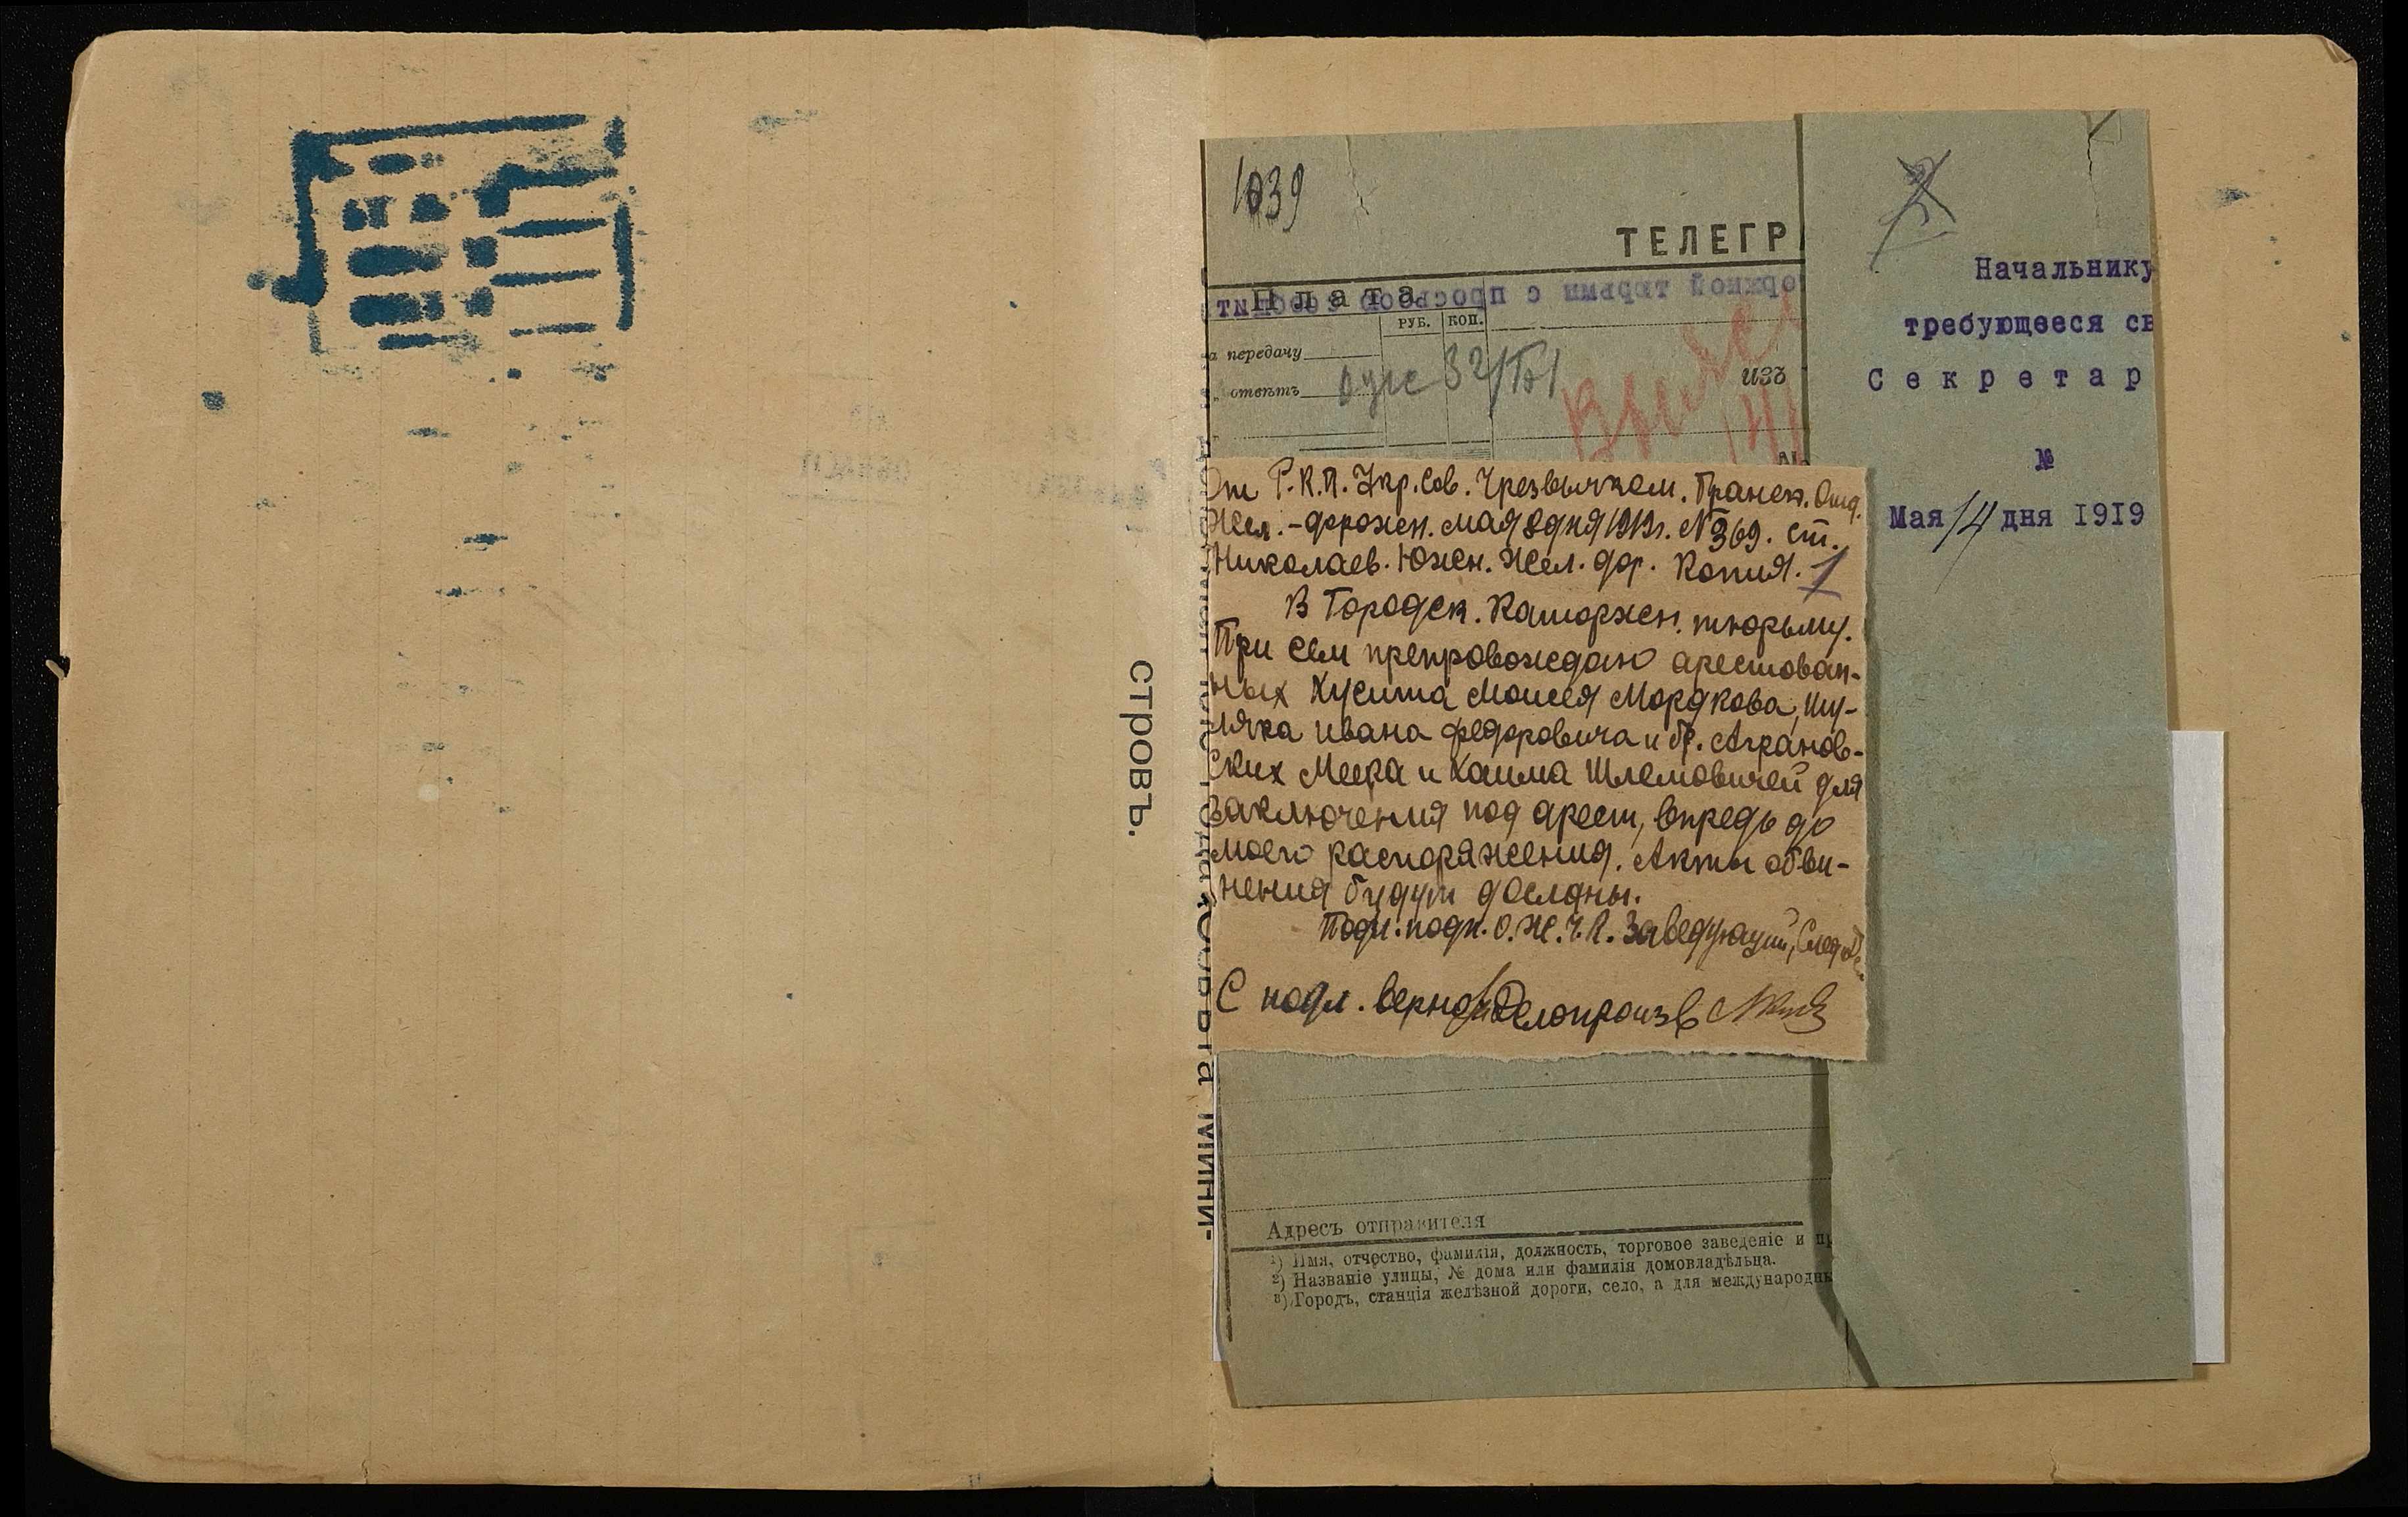 стровъ.
1039
ТЕЛЕГР
Плата
РУБ. КОП.
а передачу
отвѣтъ
изъ
Начальнику
требующееся св
Секретар
№
Мая 14 дня 1919
От Р.К.П. Укр. Сов. Чрезвычком. Трансп. Отд.
Жел.-дорожн. мая 8 дня 1919 г. № 369. ст.
Николаев. Южн. Жел. дор. Копия. 1
В Городск. Каторжн. тюрьму.
При сем препровождаю арестован-
ных Хусита Моисея Мордкова, Шу-
ляка Ивана Федоровича и бр. Агранов-
ских Меера и Хаима Шлемовичей для
заключения под арест, впредь до
моего распоряжения. Акты обви-
нения будут досланы.
Подл. подп. О.Ж.Ч.К. Заведующий,
С подл. верно: Делопроизв
Адресъ отправителя
1) Имя, отчество, фамилія, должность, торговое заведеніе и пр
2) Названіе улицы, № дома или фамилія домовладѣльца.
3) Городъ, станція желѣзной дороги, село, а для международны